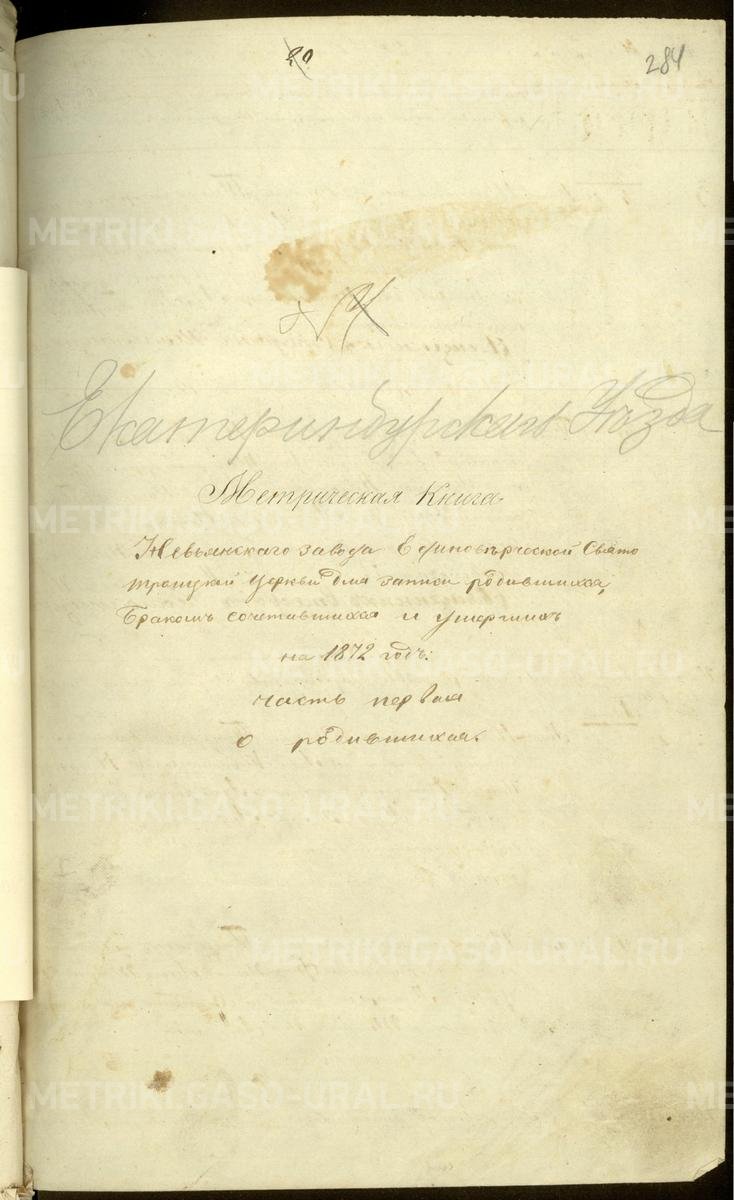 20
284
№ 4
Екатеринбургскаго Уѣзда
Метрическая Книга
Невьянскаго завода Единовѣрческой Свято
Троицкой Церкви для записи родившихся,
Бракомъ сочетавшихся и умершихъ
на 1872 годъ.
часть первая
о родившихся.
METRIKI.GASO-URAL.RU